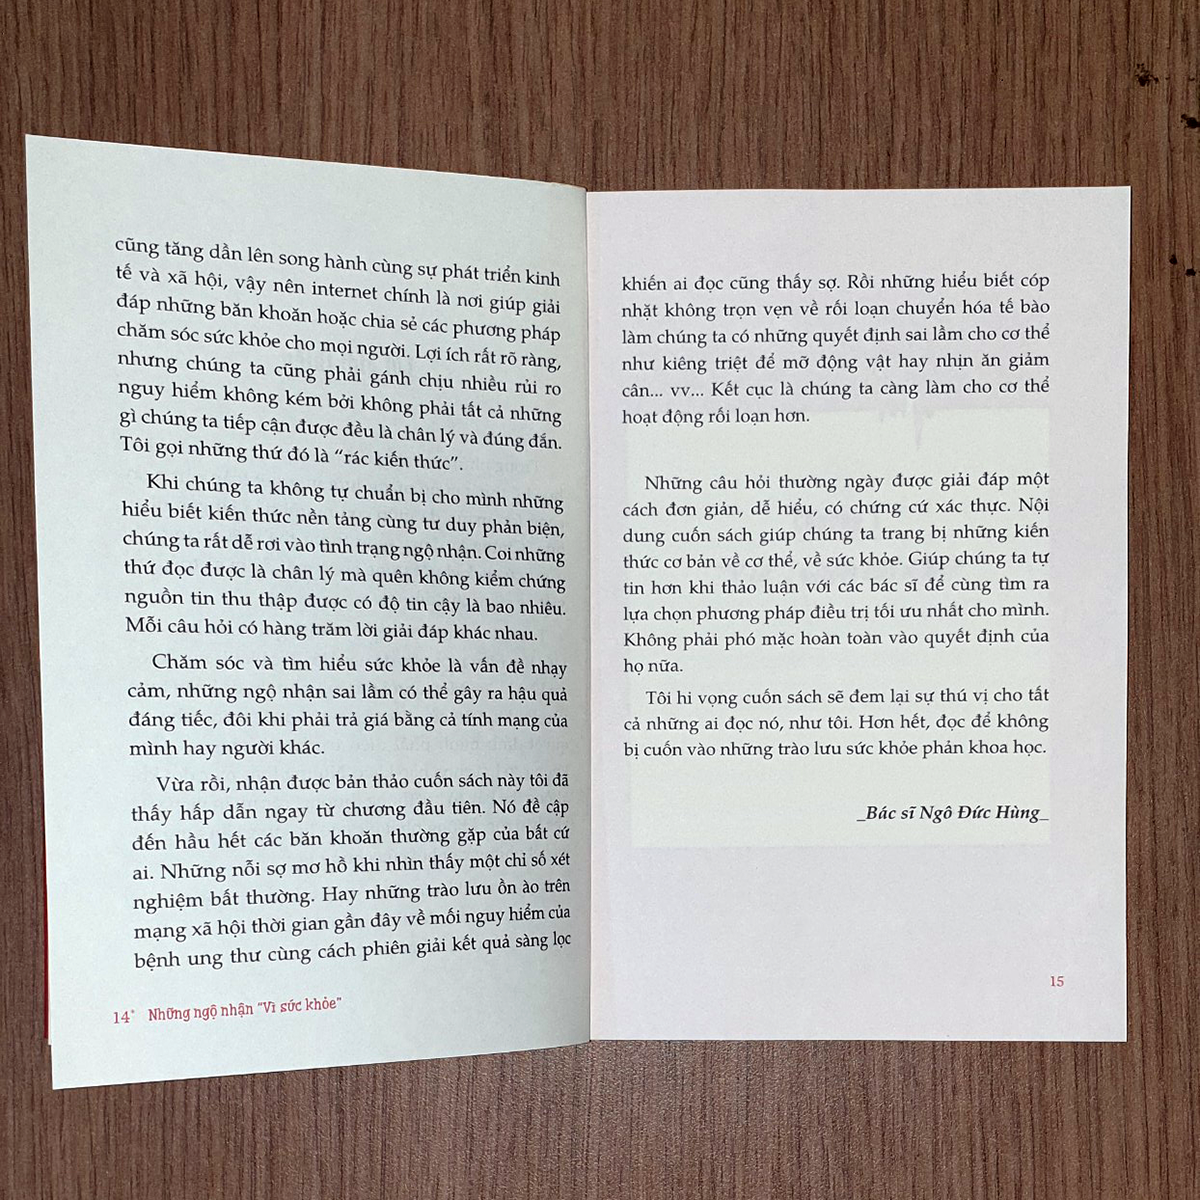 cũng tăng dần lên song hành cùng sự phát triển kinh
tế và xã hội, vậy nên internet chính là nơi giúp giải
đáp những băn khoăn hoặc chia sẻ các phương pháp
chăm sóc sức khỏe cho mọi người. Lợi ích rất rõ ràng,
nhưng chúng ta cũng phải gánh chịu nhiều rủi ro
nguy hiểm không kém bởi không phải tất cả những
gì chúng ta tiếp cận được đều là chân lý và đúng đắn.
Tôi gọi những thứ đó là “rác kiến thức”.
Khi chúng ta không tự chuẩn bị cho mình những
hiểu biết kiến thức nền tảng cùng tư duy phản biện,
chúng ta rất dễ rơi vào tình trạng ngộ nhận. Coi những
thứ đọc được là chân lý mà quên không kiểm chứng
nguồn tin thu thập được có độ tin cậy là bao nhiêu.
Mỗi câu hỏi có hàng trăm lời giải đáp khác nhau.
Chăm sóc và tìm hiểu sức khỏe là vấn đề nhạy
cảm, những ngộ nhận sai lầm có thể gây ra hậu quả
đáng tiếc, đôi khi phải trả giá bằng cả tính mạng của
mình hay người khác.
Vừa rồi, nhận được bản thảo cuốn sách này tôi đã
thấy hấp dẫn ngay từ chương đầu tiên. Nó đề cập
đến hầu hết các băn khoăn thường gặp của bất cứ
ai. Những nỗi sợ mơ hồ khi nhìn thấy một chỉ số xét
nghiệm bất thường. Hay những trào lưu ồn ào trên
mạng xã hội thời gian gần đây về mối nguy hiểm của
bệnh ung thư cùng cách phiên giải kết quả sàng lọc
14* Những ngộ nhận "Vì sức khỏe"
khiến ai đọc cũng thấy sợ. Rồi những hiểu biết cóp
nhặt không trọn vẹn về rối loạn chuyển hóa tế bào
làm chúng ta có những quyết định sai lầm cho cơ thể
như kiêng triệt để mỡ động vật hay nhịn ăn giảm
cân... vv... Kết cục là chúng ta càng làm cho cơ thể
hoạt động rối loạn hơn.
Những câu hỏi thường ngày được giải đáp một
cách đơn giản, dễ hiểu, có chứng cứ xác thực. Nội
dung cuốn sách giúp chúng ta trang bị những kiến
thức cơ bản về cơ thể, về sức khỏe. Giúp chúng ta tự
tin hơn khi thảo luận với các bác sĩ để cùng tìm ra
lựa chọn phương pháp điều trị tối ưu nhất cho mình.
Không phải phó mặc hoàn toàn vào quyết định của
họ nữa.
Tôi hi vọng cuốn sách sẽ đem lại sự thú vị cho tất
cả những ai đọc nó, như tôi. Hơn hết, đọc để không
bị cuốn vào những trào lưu sức khỏe phản khoa học.
_Bác sĩ Ngô Đức Hùng_
15